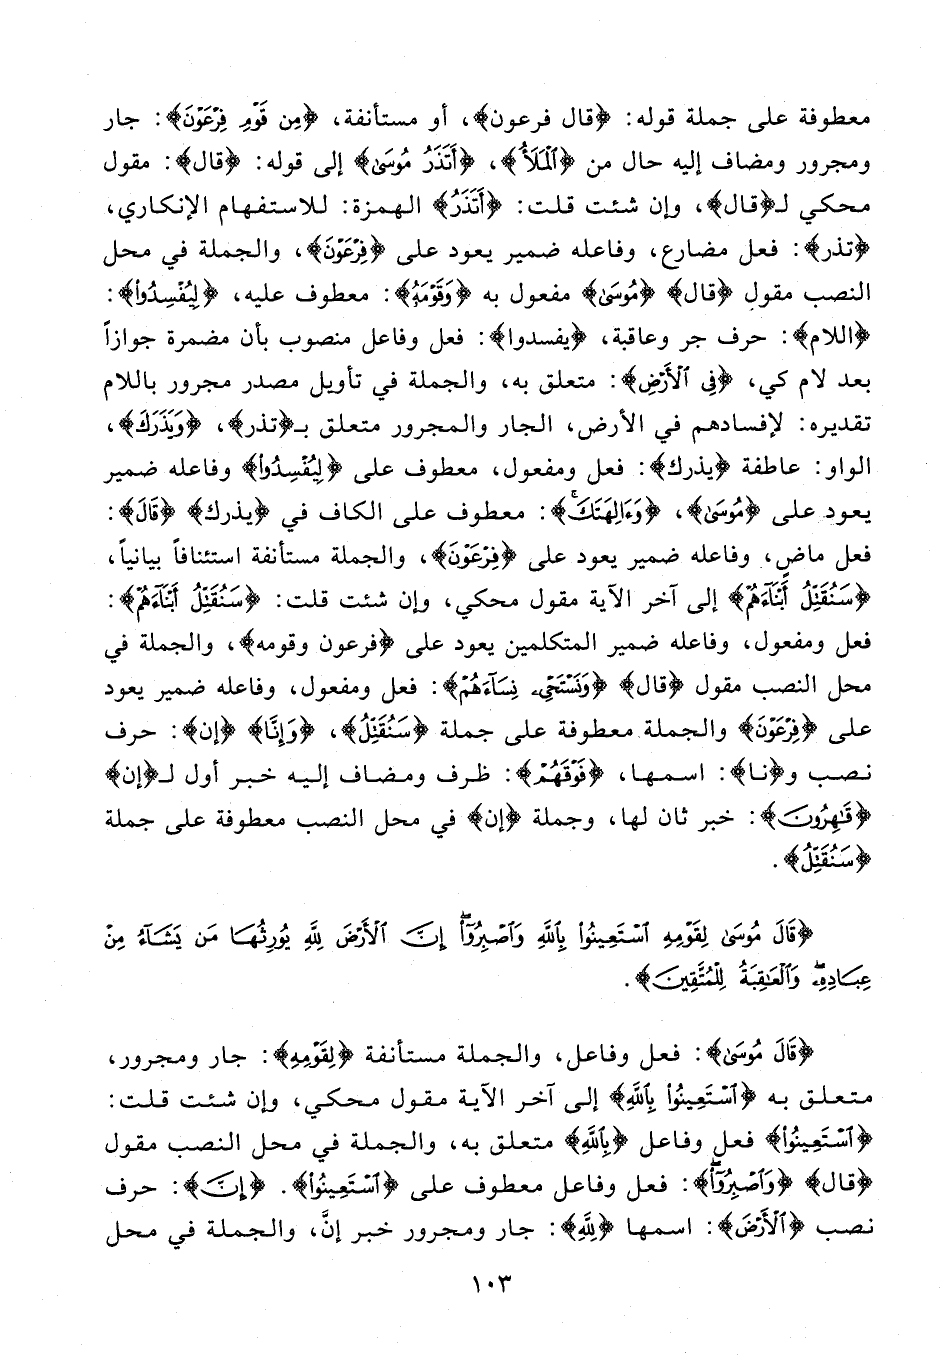 معطوفة على جملة قوله: ﴿قال فرعون﴾، أو مستأنفة، ﴿مِن قَوْمِ فِرْعَوْنَ﴾: جار
ومجرور ومضاف إليه حال من ﴿ٱلْمَلَأُ﴾، ﴿أَتَذَرُ مُوسَىٰ﴾ إلى قوله: ﴿قال﴾: مقول
محكي لـ﴿قال﴾، وإن شئت قلت: ﴿أَتَذَرُ﴾ الهمزة: للاستفهام الإنكاري،
﴿تذر﴾: فعل مضارع، وفاعله ضمير يعود على ﴿فِرْعَوْنَ﴾، والجملة في محل
النصب مقول ﴿قال﴾ ﴿مُوسَىٰ﴾ مفعول به ﴿وَقَوْمَهُ﴾: معطوف عليه، ﴿لِيُفْسِدُوا۟﴾:
﴿اللام﴾: حرف جر وعاقبة، ﴿يفسدوا﴾: فعل وفاعل منصوب بأن مضمرة جوازاً
بعد لام كي، ﴿فِى ٱلْأَرْضِ﴾: متعلق به، والجملة في تأويل مصدر مجرور باللام
تقديره: لإفسادهم في الأرض، الجار والمجرور متعلق بـ﴿تذر﴾، ﴿وَيَذَرَكَ﴾،
الواو: عاطفة ﴿يذرك﴾: فعل ومفعول، معطوف على ﴿لِيُفْسِدُوا۟﴾ وفاعله ضمير
يعود على ﴿مُوسَىٰ﴾، ﴿وَءَالِهَتَكَ﴾: معطوف على الكاف في ﴿يذرك﴾ ﴿قَالَ﴾:
فعل ماضٍ، وفاعله ضمير يعود على ﴿فِرْعَوْنَ﴾، والجملة مستأنفة استئنافاً بيانياً،
﴿سَنُقَتِّلُ أَبْنَآءَهُمْ﴾ إلى آخر الآية مقول محكي، وإن شئت قلت: ﴿سَنُقَتِّلُ أَبْنَآءَهُمْ﴾:
فعل ومفعول، وفاعله ضمير المتكلمين يعود على ﴿فرعون وقومه﴾، والجملة في
محل النصب مقول ﴿قال﴾ ﴿وَنَسْتَحْىِۦ نِسَآءَهُمْ﴾: فعل ومفعول، وفاعله ضمير يعود
على ﴿فِرْعَوْنَ﴾ والجملة معطوفة على جملة ﴿سَنُقَتِّلُ﴾، ﴿وَإِنَّا﴾ ﴿إن﴾: حرف
نصب و﴿نا﴾: اسمها، ﴿فَوْقَهُمْ﴾: ظرف ومضاف إليه خبر أول لـ﴿إن﴾
﴿قَٰهِرُونَ﴾: خبر ثان لها، وجملة ﴿إن﴾ في محل النصب معطوفة على جملة
﴿سَنُقَتِّلُ﴾.
﴿قَالَ مُوسَىٰ لِقَوْمِهِ ٱسْتَعِينُوا۟ بِٱللَّهِ وَٱصْبِرُوٓا۟ۖ إِنَّ ٱلْأَرْضَ لِلَّهِ يُورِثُهَا مَن يَشَآءُ مِنْ
عِبَادِهِۦۖ وَٱلْعَٰقِبَةُ لِلْمُتَّقِينَ﴾.
﴿قَالَ مُوسَىٰ﴾: فعل وفاعل، والجملة مستأنفة ﴿لِقَوْمِهِ﴾: جار ومجرور،
متعلق به ﴿ٱسْتَعِينُوا۟ بِٱللَّهِ﴾ إلى آخر الآية مقول محكي، وإن شئت قلت:
﴿ٱسْتَعِينُوا۟﴾ فعل وفاعل ﴿بِٱللَّهِ﴾ متعلق به، والجملة في محل النصب مقول
﴿قال﴾ ﴿وَٱصْبِرُوٓا۟ۖ﴾: فعل وفاعل معطوف على ﴿ٱسْتَعِينُوا۟﴾. ﴿إِنَّ﴾: حرف
نصب ﴿ٱلْأَرْضَ﴾: اسمها ﴿لِلَّهِ﴾: جار ومجرور خبر إنَّ، والجملة في محل
١٠٣